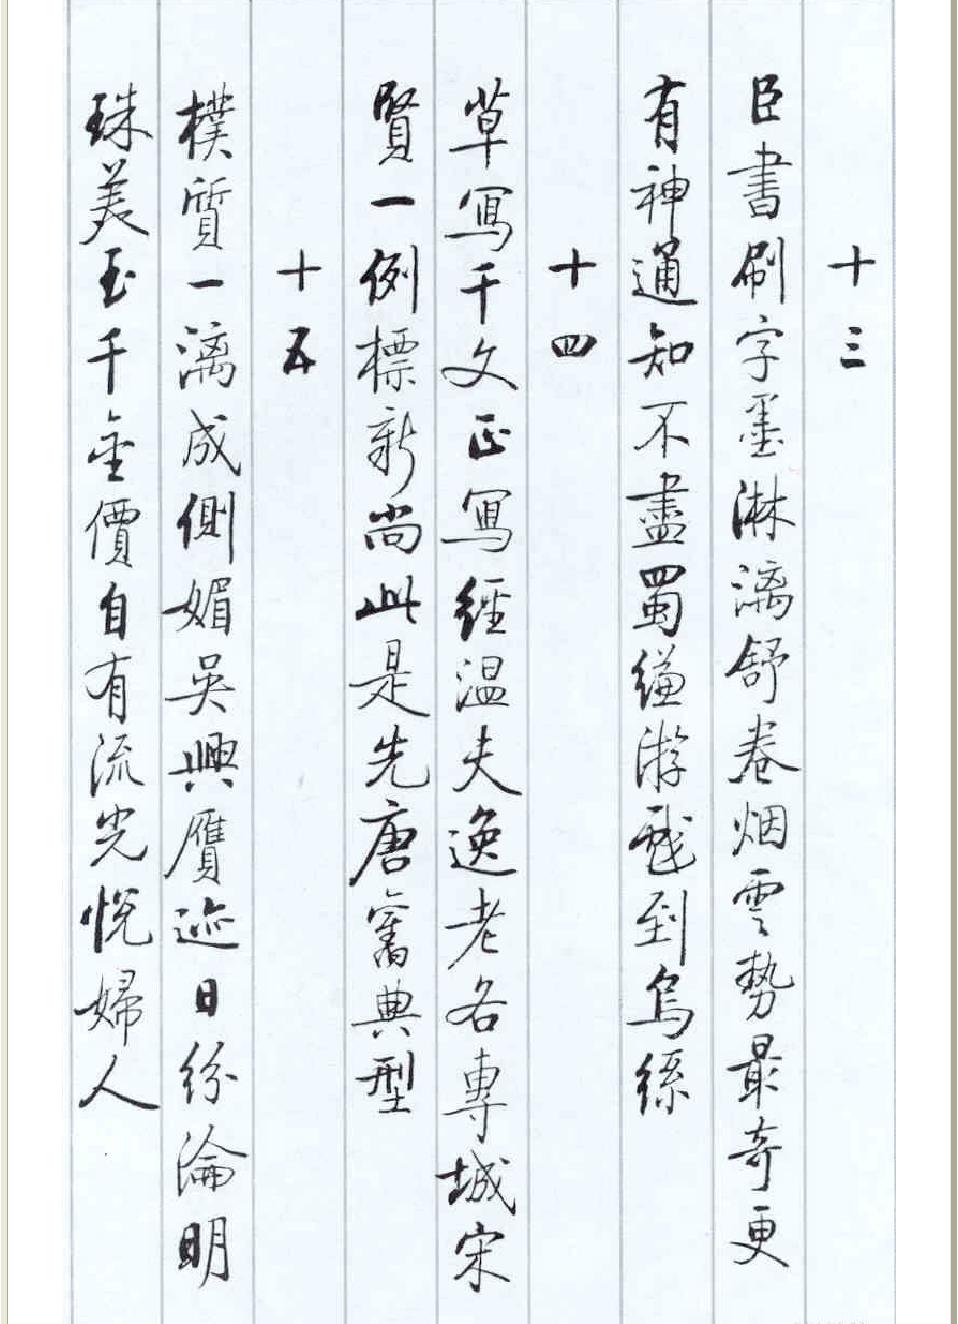 十三
臣書刷字墨淋漓舒卷烟雲勢最奇更
有神通知不盡蜀縑游戲到烏絲
十四
草寫千文正寫經温夫逸老各專城宋
賢一例標新尚此是先唐舊典型
十五
樸質一漓成側媚吳興贗迹日紛淪明
珠美玉千金價自有流光悅婦人